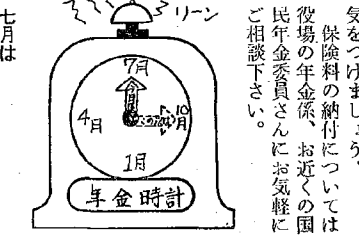 気をつけましょう。
保険料の納付については
役場の年金係、お近くの国
民年金委員さんにお気軽に
ご相談下さい。
リーン
7月
4月
10月
1月
今月
年金時計
七月は